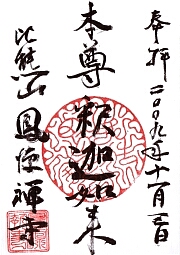 奉拝 二〇〇九年十一月三日
本尊 釈迦如来
比熊山 鳳源禅寺